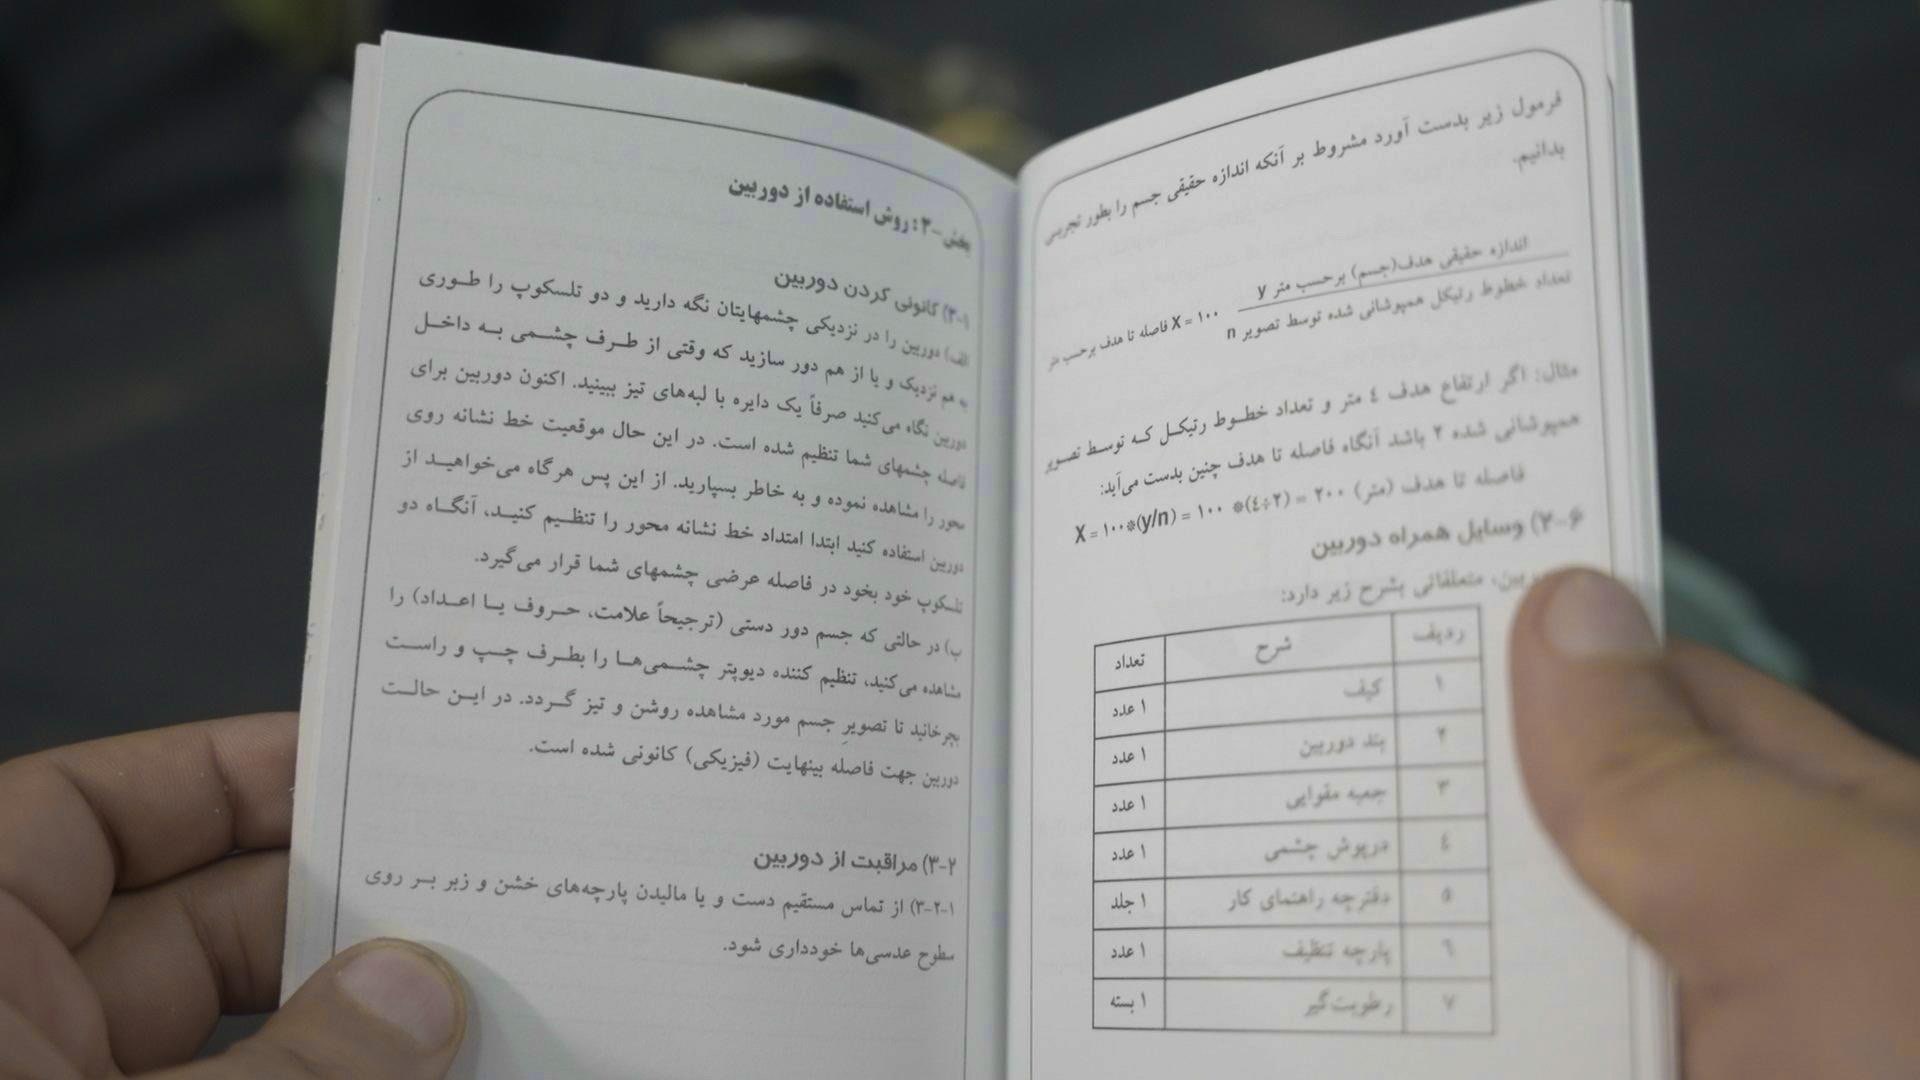 فرمول زیر بدست آورد مشروط بر آنکه اندازه حقیقی جسم را بطور تجربی
بدانیم.
اندازه حقیقی هدف(جسم) برحسب متر y
فاصله تا هدف برحسب متر X = ۱۰۰
تعداد خطوط رتیکل همپوشانی شده توسط تصویر n
مثال: اگر ارتفاع هدف ٤ متر و تعداد خطـوط رتیکـل کـه توسـط تصـویر
همپوشانی شده ۲ باشد آنگاه فاصله تا هدف چنین بدست می‌آید:
فاصله تا هدف (متر) X = ۱۰۰*(y/n) = ۱۰۰ *(٤÷۲) = ۲۰۰
۲-۶) وسایل همراه دوربین
متعلقاتی بشرح زیر دارد:
ردیف شرح تعداد
۱ کیف ۱ عدد
۲ بند دوربین ۱ عدد
۳ جعبه مقوایی ۱ عدد
٤ درپوش چشمی ۱ عدد
۵ دفترچه راهنمای کار ۱ جلد
٦ پارچه تنظیف ۱ عدد
۷ رطوبت‌گیر ۱ بسته
بخش-۳: روش استفاده از دوربین
۳-۱) کانونی کردن دوربین
الف) دوربین را در نزدیکی چشمهایتان نگه دارید و دو تلسکوپ را طـوری
به هم نزدیک و یا از هم دور سازید که وقتی از طـرف چشـمی بـه داخـل
دوربین نگاه می‌کنید صرفاً یک دایره با لبه‌های تیز ببینید. اکنون دوربین برای
فاصله چشمهای شما تنظیم شده است. در این حال موقعیت خط نشانه روی
محور را مشاهده نموده و به خاطر بسپارید. از این پس هرگاه می‌خواهیـد از
دوربین استفاده کنید ابتدا امتداد خط نشانه محور را تنظـیم کنیـد، آنگـاه دو
تلسکوپ خود بخود در فاصله عرضی چشمهای شما قرار می‌گیرد.
ب) در حالتی که جسم دور دستی (ترجیحاً علامت، حـروف یـا اعـداد) را
مشاهده می‌کنید، تنظیم کننده دیوپتر چشـمی‌هـا را بطـرف چـپ و راسـت
بچرخانید تا تصویرِ جسم مورد مشاهده روشن و تیز گـردد. در ایـن حالـت
دوربین جهت فاصله بینهایت (فیزیکی) کانونی شده است.
۳-۲) مراقبت از دوربین
۳-۲-۱) از تماس مستقیم دست و یا مالیدن پارچه‌های خشن و زبر بـر روی
سطوح عدسی‌ها خودداری شود.